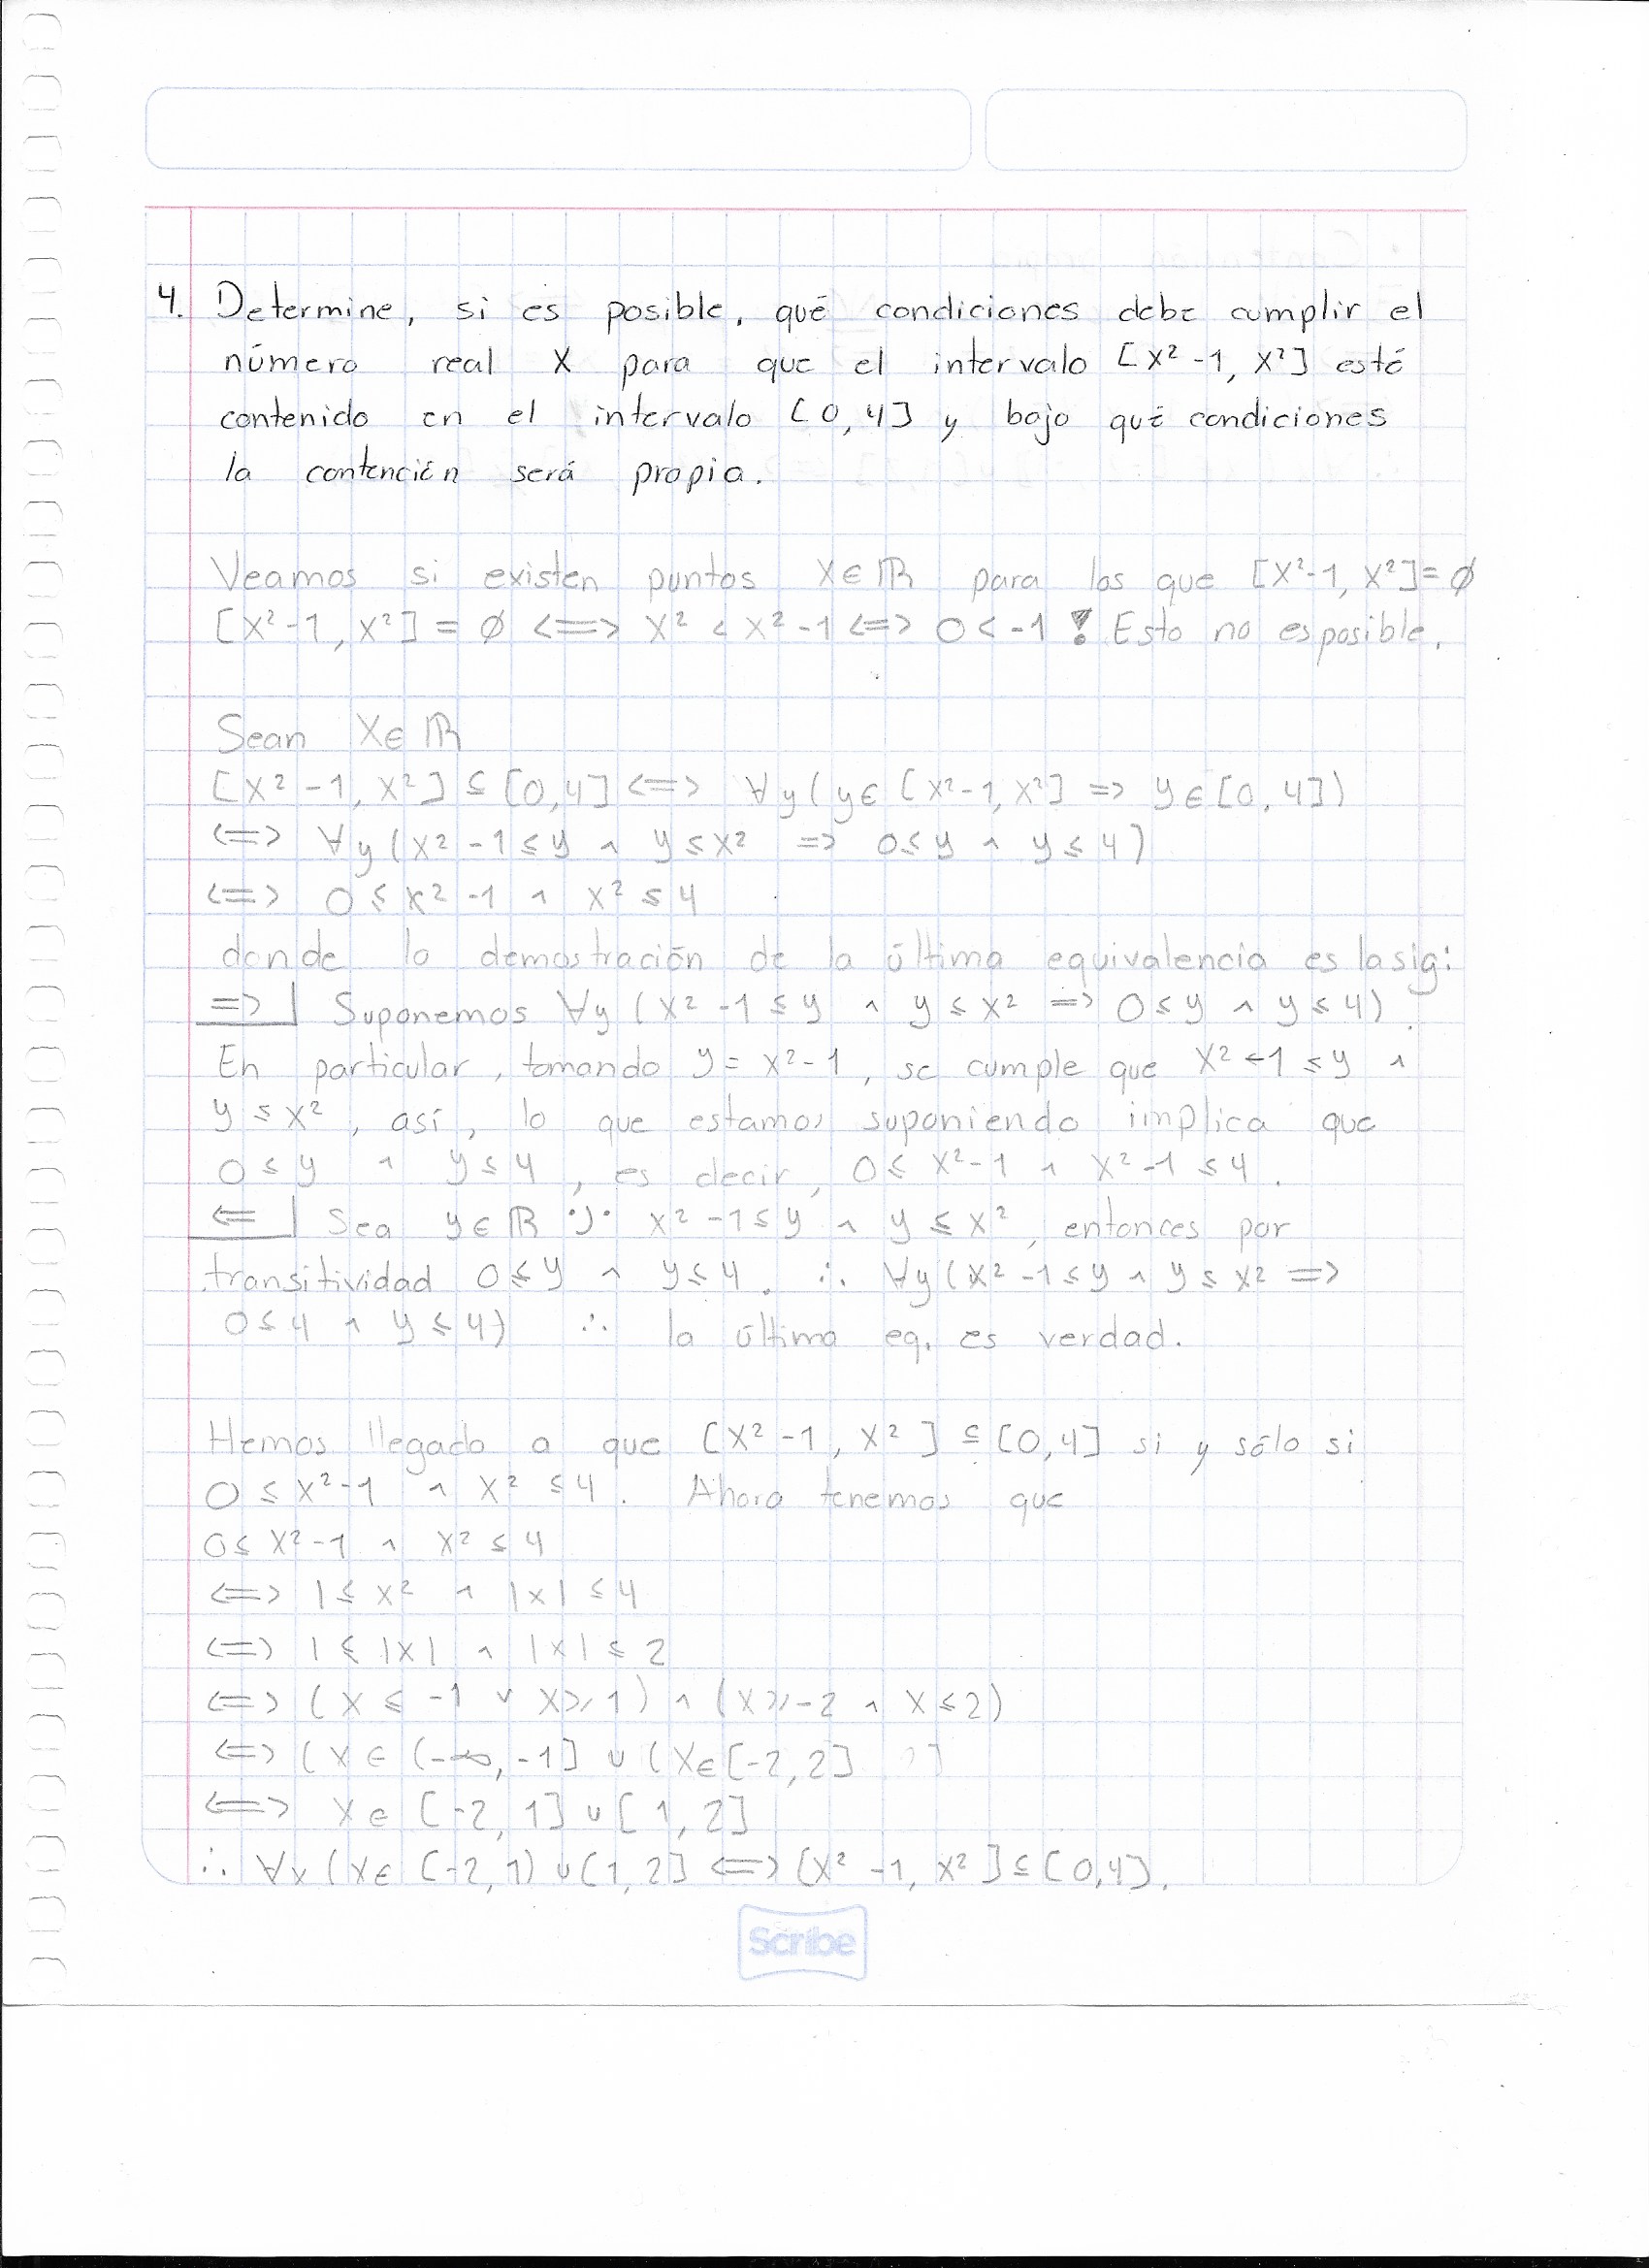 4. Determine, si es posible, qué condiciones debe cumplir el
número real X para que el intervalo [X² -1, X²] esté
contenido en el intervalo [0, 4] y bajo qué condiciones
la contención será propia.
Veamos si existen puntos X∈ℝ para los que [X²-1, X²]=∅
[X²-1, X²] = ∅ <=> X² < X²-1 <=> 0<-1 ! Esto no es posible.
Sean X∈ℝ
[X²-1, X²] ⊆ [0,4] <=> ∀y(y∈[X²-1, X²] => y∈[0,4])
<=> ∀y(X²-1≤y ∧ y≤X² => 0≤y ∧ y≤4)
<=> 0≤X²-1 ∧ X²≤4
donde la demostración de la última equivalencia es la sig:
=>| Suponemos ∀y (X²-1≤y ∧ y≤X² => 0≤y ∧ y≤4).
En particular, tomando y=X²-1, se cumple que X²-1≤y ∧
y≤X², así, lo que estamos suponiendo implica que
0≤y ∧ y≤4, es decir, 0≤X²-1 ∧ X²-1≤4.
<=| Sea y∈ℝ ·)· X²-1≤y ∧ y≤X², entonces por
transitividad 0≤y ∧ y≤4. ∴ ∀y(X²-1≤y ∧ y≤X² =>
0≤4 ∧ y≤4) ∴ la última eq. es verdad.
Hemos llegado a que [X²-1, X²] ⊆ [0,4] si y sólo si
0≤X²-1 ∧ X²≤4. Ahora tenemos que
0≤X²-1 ∧ X²≤4
<=> 1≤X² ∧ |x|≤4
<=> 1≤|X| ∧ |X|≤2
<=> (X≤-1 ∨ X≥1) ∧ (X≥-2 ∧ X≤2)
<=> (X∈(-∞,-1] ∪ (X∈[-2,2]
<=> X∈[-2,1]∪[1,2]
∴ ∀x(X∈[-2,1)∪[1,2] <=> [X²-1, X²]⊆[0,4].
Scribe